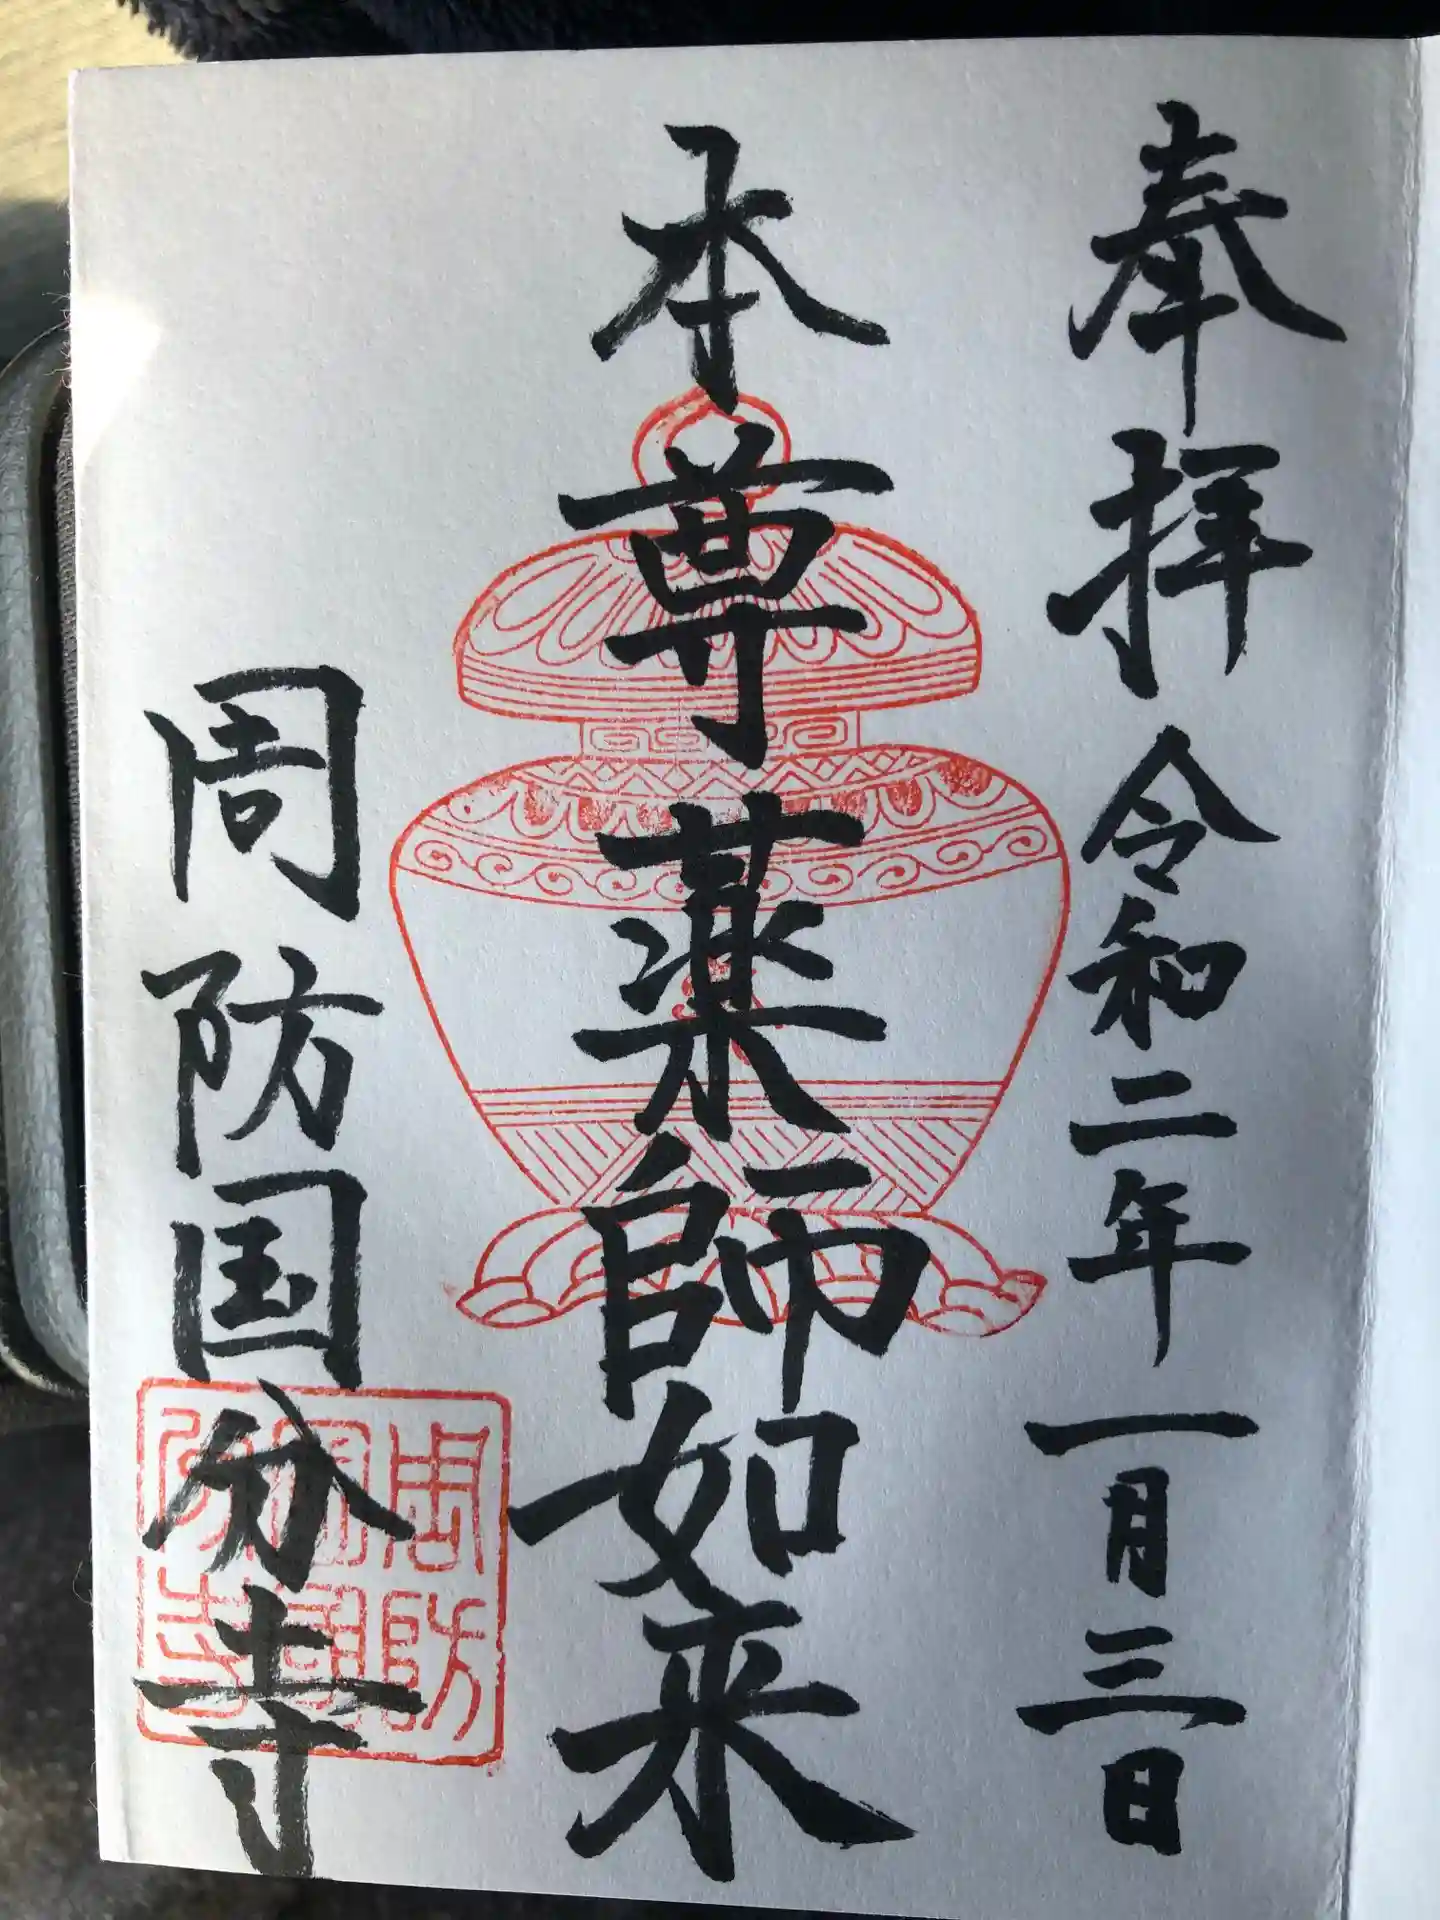 奉拝 令和二年一月三日
本尊薬師如来
周防国分寺
周防國分寺